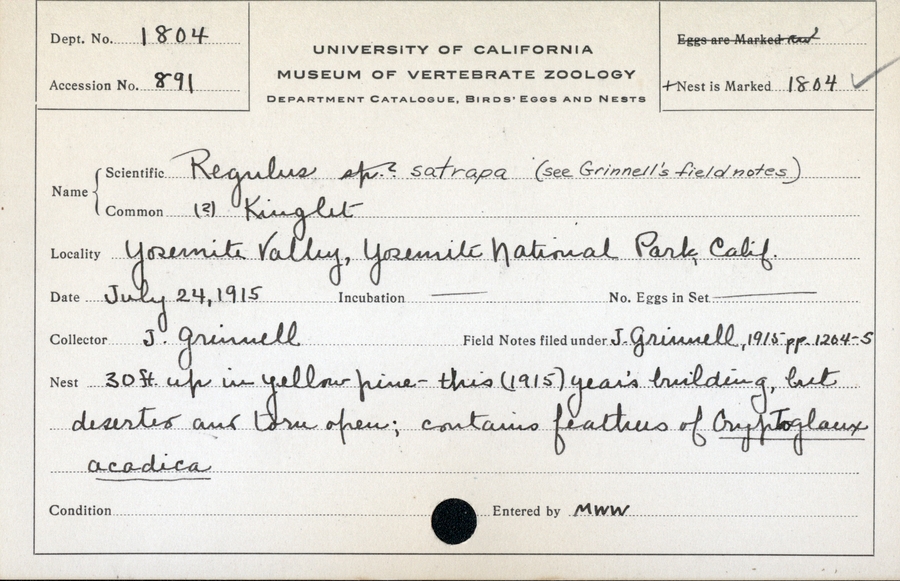 Dept. No. 1804
Accession No. 891
UNIVERSITY OF CALIFORNIA
MUSEUM OF VERTEBRATE ZOOLOGY
DEPARTMENT CATALOGUE, BIRDS' EGGS AND NESTS
Eggs are Marked
+Nest is Marked 1804 ✓
Name
Scientific Regulus sp.? satrapa (see Grinnell's field notes)
Common (?) Kinglet
Locality Yosemite Valley, Yosemite National Park, Calif.
Date July 24, 1915 Incubation — No. Eggs in Set —
Collector J. Grinnell Field Notes filed under J. Grinnell, 1915 pp. 1264-5
Nest 30 ft. up in yellow pine - this (1915) year's building, but
deserted and torn open; contains feathers of Cryptoglaux
acadica
Condition Entered by MWW